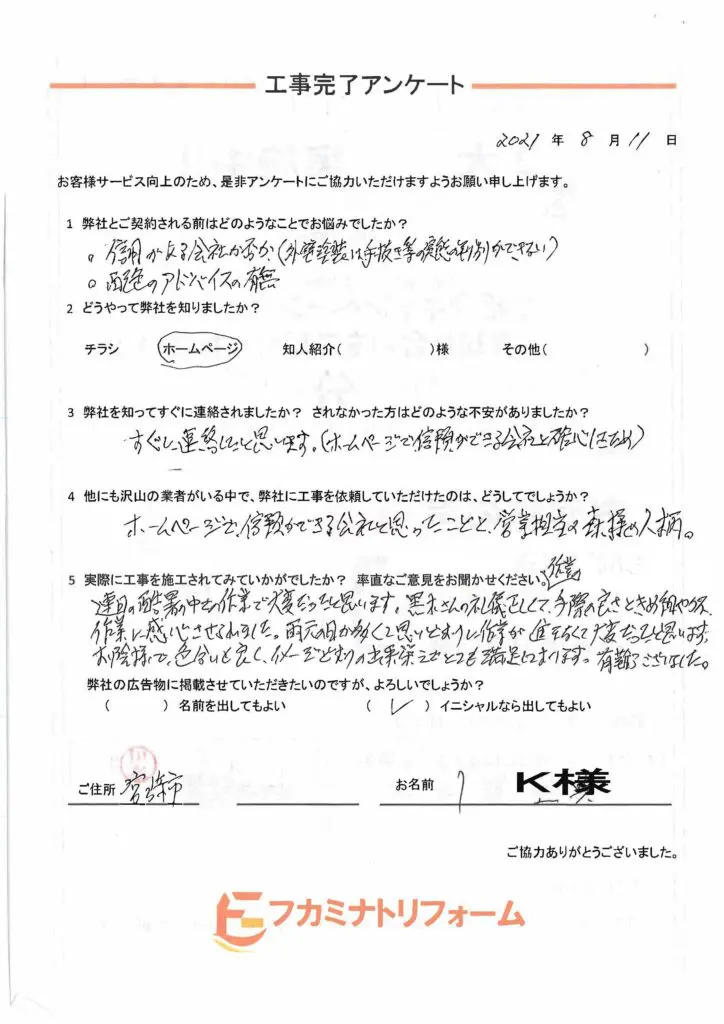 工事完了アンケート
2021 年 8 月 11 日
お客様サービス向上のため、是非アンケートにご協力いただけますようお願い申し上げます。
1 弊社とご契約される前はどのようなことでお悩みでしたか？
。信用がよる会社か否か（外壁塗装は手抜き等の実態の判別ができない）
。配色のアドバイスの有無
2 どうやって弊社を知りましたか？
チラシ ホームページ 知人紹介( )様 その他( )
3 弊社を知ってすぐに連絡されましたか？ されなかった方はどのような不安がありましたか？
すぐに連絡したと思います。（ホームページで信頼ができる会社と確心したため）
4 他にも沢山の業者がいる中で、弊社に工事を依頼していただけたのは、どうしてでしょうか？
ホームページで、信頼ができる会社と思ったことと、営業担当の森様の人柄。
5 実際に工事を施工されてみていかがでしたか？ 率直なご意見をお聞かせください。
連日の酷暑の中での作業で大変だったと思います。黒木さんの礼儀正しくて、手際の良さときめ細やかな
作業に感心させられました。雨天の日が多くて思いどおりに作業が進まなくて大変だったと思います。
お陰様で、色合いも良く、イメージどおりの出来栄えでとても満足しております。有難うございました。
弊社の広告物に掲載させていただきたいのですが、よろしいでしょうか？
( ) 名前を出してもよい ( ✓ ) イニシャルなら出してもよい
ご住所 宮崎市 お名前 K様
ご協力ありがとうございました。
フカミナトリフォーム